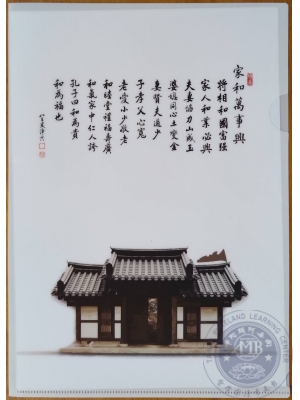 家和萬事興
將相和國富強
家人和業必興
夫妻協力山成玉
婆媳同心土變金
妻賢夫過少
子孝父心寬
老愛小少敬老
和睦堂禮福壽廣
和氣家中仁人誇
孔子四和為貴
和為福也
LELAND LEARNING CENTER
MB